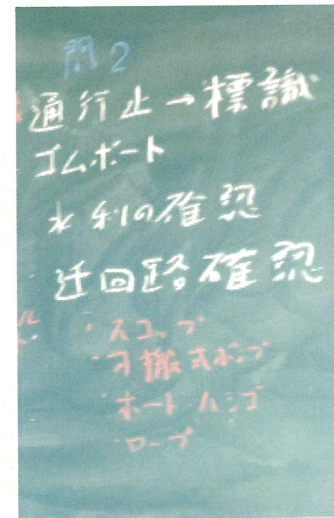 問2
通行止→標識
ゴムボート
水利の確認
迂回路確認
・スコップ
・可搬式ポンプ
・ボート ハシゴ
・ロープ